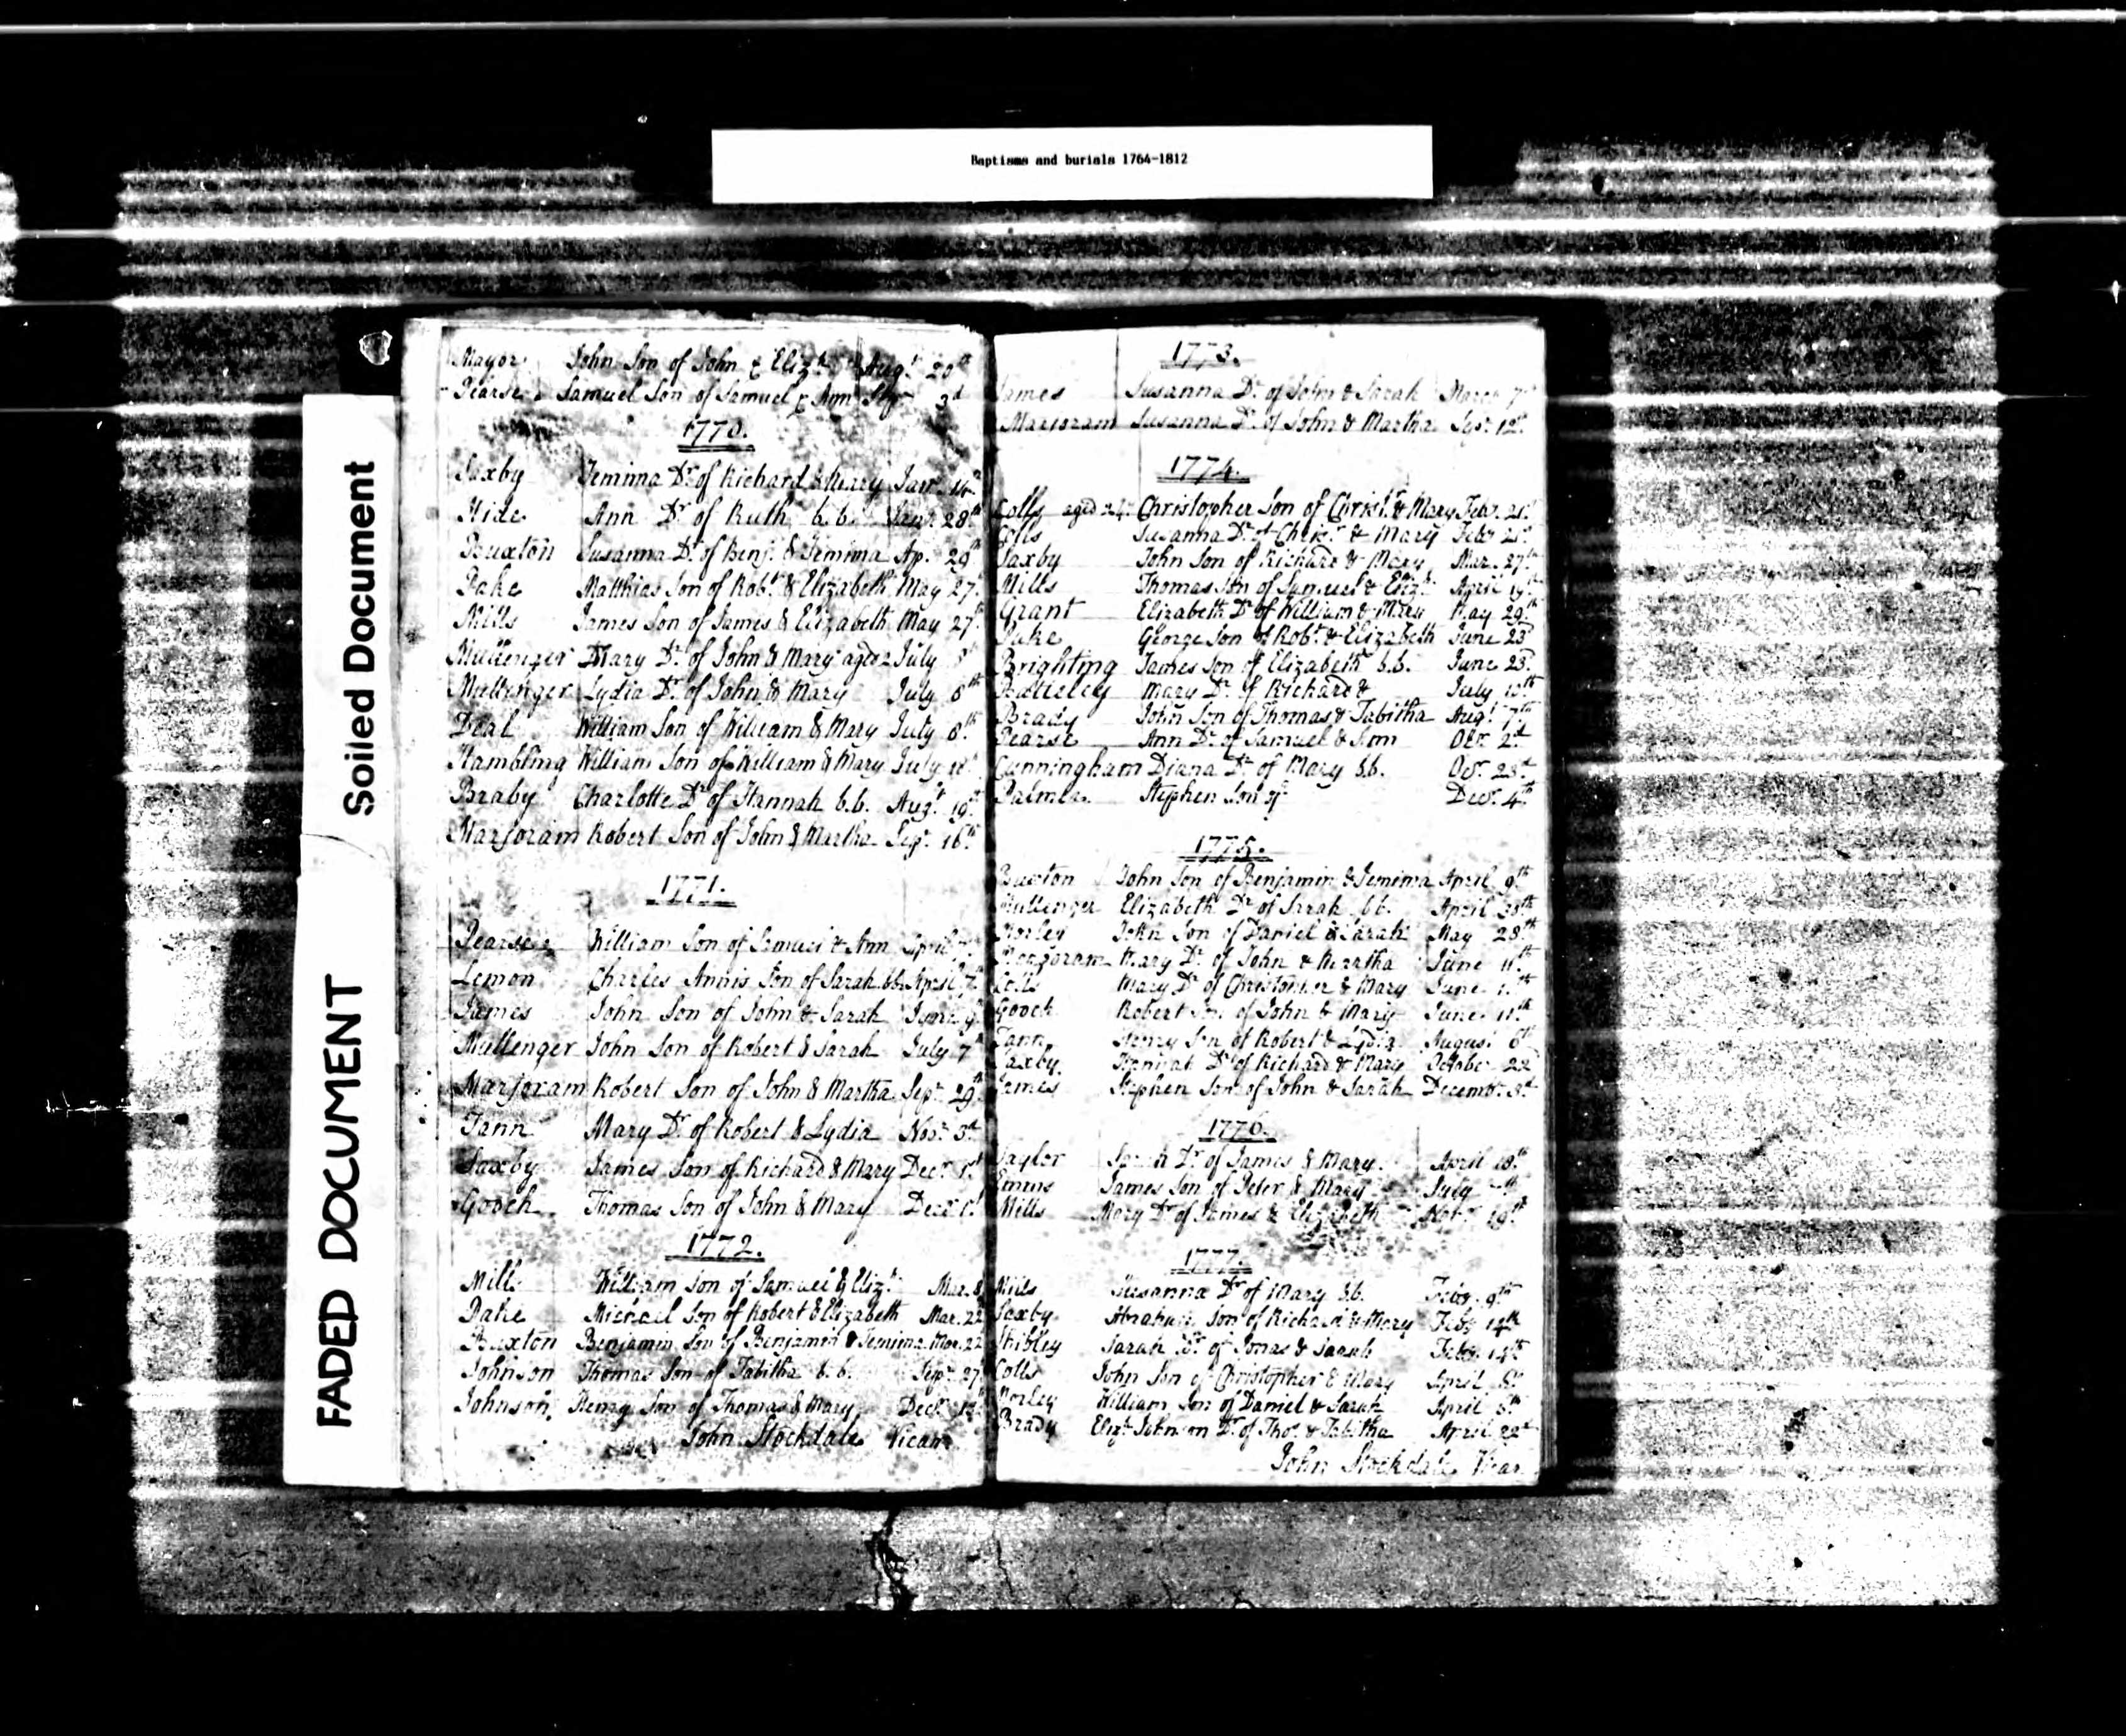 Baptisms and burials 1764-1812
Soiled Document
FADED DOCUMENT
Mayor John Son of John & Eliz.th Aug.t 20th
Pearse Samuel Son of Samuel & Ann 3d
1770.
Saxby Jemima Dr. of Richard & Mary Jan. 14th
Hide Ann Dr. of Ruth b.b. Jan. 28th
Buxton Susanna Dr. of Benj. & Jemima Ap. 29th
Pake Matthias Son of Robt. & Elizabeth May 27
Mills James Son of James & Elizabeth May 27th
Mullenger Mary Dr. of John & Mary aged 2 July 8th
Mullenger Lydia Dr. of John & Mary July 8th
Deal William Son of William & Mary July 8th
Hambling William Son of William & Mary July
Braby Charlotte Dr. of Hannah b.b. Augt. 19th
Marjoram Robert Son of John & Martha Sepr. 16th
1771.
Pearse William Son of Samuel & Ann April 7
Lemon Charles Annis Son of Sarah bb. April 7th
James John Son of John & Sarah June 9th
Mullenger John Son of Robert & Sarah July 7th
Marjoram Robert Son of John & Martha Sepr. 29th
Tann Mary Dr. of Robert & Lydia Novr. 3d
Saxby James Son of Richard & Mary Decr. 1st
Gooch Thomas Son of John & Mary Decr. 1st
1772.
Mills William Son of Samuel & Eliz.h Mar. 8
Pake Michael Son of Robert & Elizabeth Mar. 22
Buxton Benjamin Son of Benjamin & Jemima Mar. 22
Johnson Thomas Son of Tabitha b.b. Sepr. 27th
Johnson Henry Son of Thomas & Mary Decr.
John Stockdale Vicar
1773.
James Susanna Dr. of John & Sarah March 7th
Marjoram Susanna Dr. of John & Martha Sepr. 12th
1774.
Colls aged 24 Christopher Son of Christr. & Mary Febr. 21st
Colls Susanna Dr. of Chrisr. & Mary Febr. 21st
Saxby John Son of Richard & Mary Mar. 27th
Mills Thomas Son of Samuel & Eliz.h April 19th
Grant Elizabeth Dr. of William & Mary May 29th
Pake George Son of Robt. & Elizabeth June 23d
Brighting James Son of Elizabeth b.b. June 23d
Mary Dr. of Richard & July 10th
Brady John Son of Thomas & Tabitha Augt. 7th
Pearse Ann Dr. of Samuel & Ann Octr. 2d
Cunningham Diana Dr. of Mary b.b. Ocr. 23d
Palmer Stephen Son of Decr. 4th
1775.
Buxton John Son of Benjamin & Jemima April 9th
Mullenger Elizabeth Dr. of Sarah bb. April 30th
Morley John Son of Daniel & Sarah May 28th
Marjoram Mary Dr. of John & Martha June 11th
Colls Mary Dr. of Christopher & Mary June 11th
Gooch Robert Son of John & Mary June 11th
Tann Henry Son of Robert & Lydia August 6th
Saxby Hannah Dr. of Richard & Mary October 22
James Stephen Son of John & Sarah Decembr. 3d
1776.
Taylor Sarah Dr. of James & Mary April 18th
James Son of Peter & Mary July
Mills Mary Dr. of James & Elizabeth Novr. 19th
1777.
Mills Susanna Dr. of Mary bb. Febr. 9th
Saxby Abraham Son of Richard & Mary Febr. 14th
Sarah Dr. of Jonas & Sarah Febr. 14th
Colls John Son of Christopher & Mary April 6th
Morley William Son of Daniel & Sarah April 6th
Brady Elizth. Johnson Dr. of Thos. & Tabitha April 22d
John Stockdale Vicar